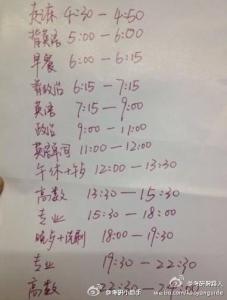 起床 4:30 — 4:50
背英语 5:00 — 6:00
早餐 6:00 — 6:15
背政治 6:15 — 7:15
英语 7:15 — 9:00
政治 9:00 — 11:00
英语单词 11:00 — 12:00
午休+午饭 12:00 — 13:30
高数 13:30 — 15:30
专业 15:30 — 18:00
晚饭+洗刷 18:00 — 19:30
专业 19:30 — 22:30
高数 22:30 — 24:
@考研小助手
weibo.com/kaoyangside